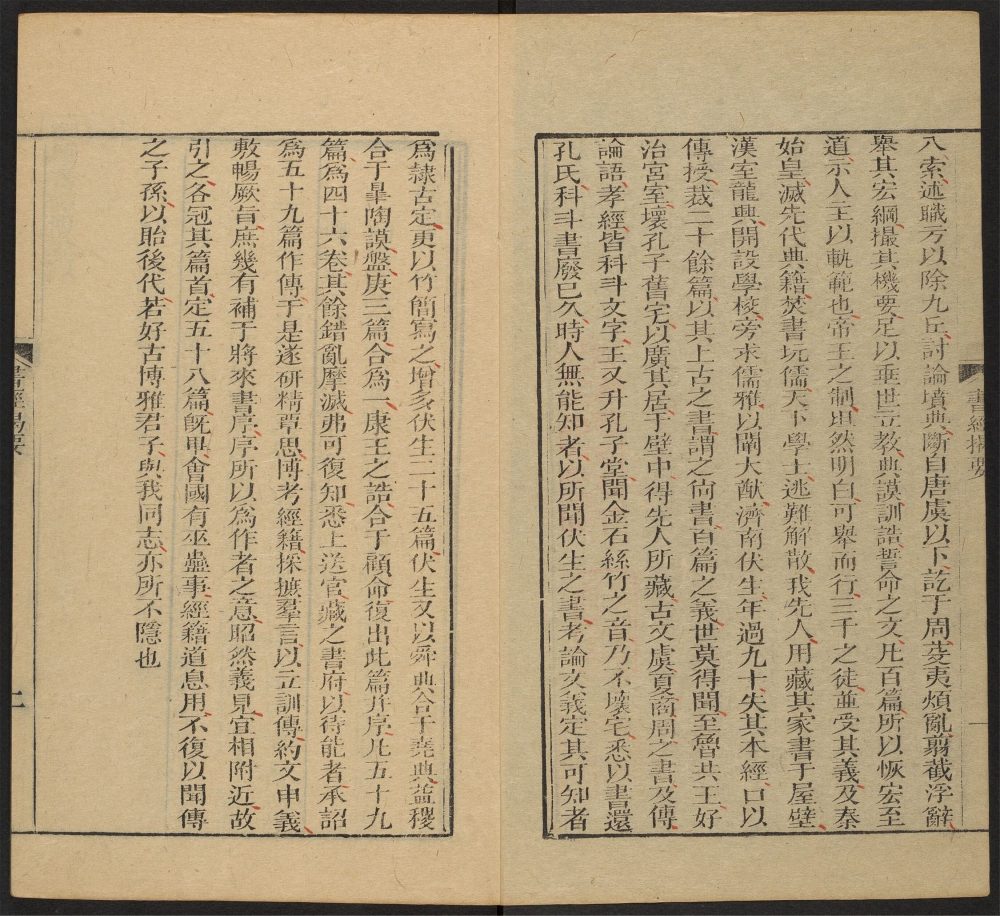 八索述職方以除九丘討論墳典斷自唐虞以下訖于周芟夷煩亂翦截浮辭
舉其宏綱撮其機要足以垂世立教典謨訓誥誓命之文凡百篇所以恢宏至
道示人主以軌範也帝王之制坦然明白可舉而行三千之徒並受其義及秦
始皇滅先代典籍焚書坑儒天下學士逃難解散我先人用藏其家書于屋壁
漢室龍興開設學校旁求儒雅以闡大猷濟南伏生年過九十失其本經口以
傳授裁二十餘篇以其上古之書謂之尙書百篇之義世莫得聞至魯共王好
治宮室壞孔子舊宅以廣其居于壁中得先人所藏古文虞夏商周之書及傳
論語孝經皆科斗文字王又升孔子堂聞金石絲竹之音乃不壞宅悉以書還
孔氏科斗書廢已久時人無能知者以所聞伏生之書考論文義定其可知者
爲隸古定更以竹簡寫之增多伏生二十五篇伏生又以舜典合于堯典益稷
合于皐陶謨盤庚三篇合爲一康王之誥合于顧命復出此篇幷序凡五十九
篇爲四十六卷其餘錯亂摩滅弗可復知悉上送官藏之書府以待能者承詔
爲五十九篇作傳于是遂研精覃思博考經籍採摭羣言以立訓傳約文申義
敷暢厥旨庶幾有補于將來書序序所以爲作者之意昭然義見宜相附近故
引之各冠其篇首定五十八篇旣畢會國有巫蠱事經籍道息用不復以聞傳
之子孫以貽後代若好古博雅君子與我同志亦所不隱也
書經揚要